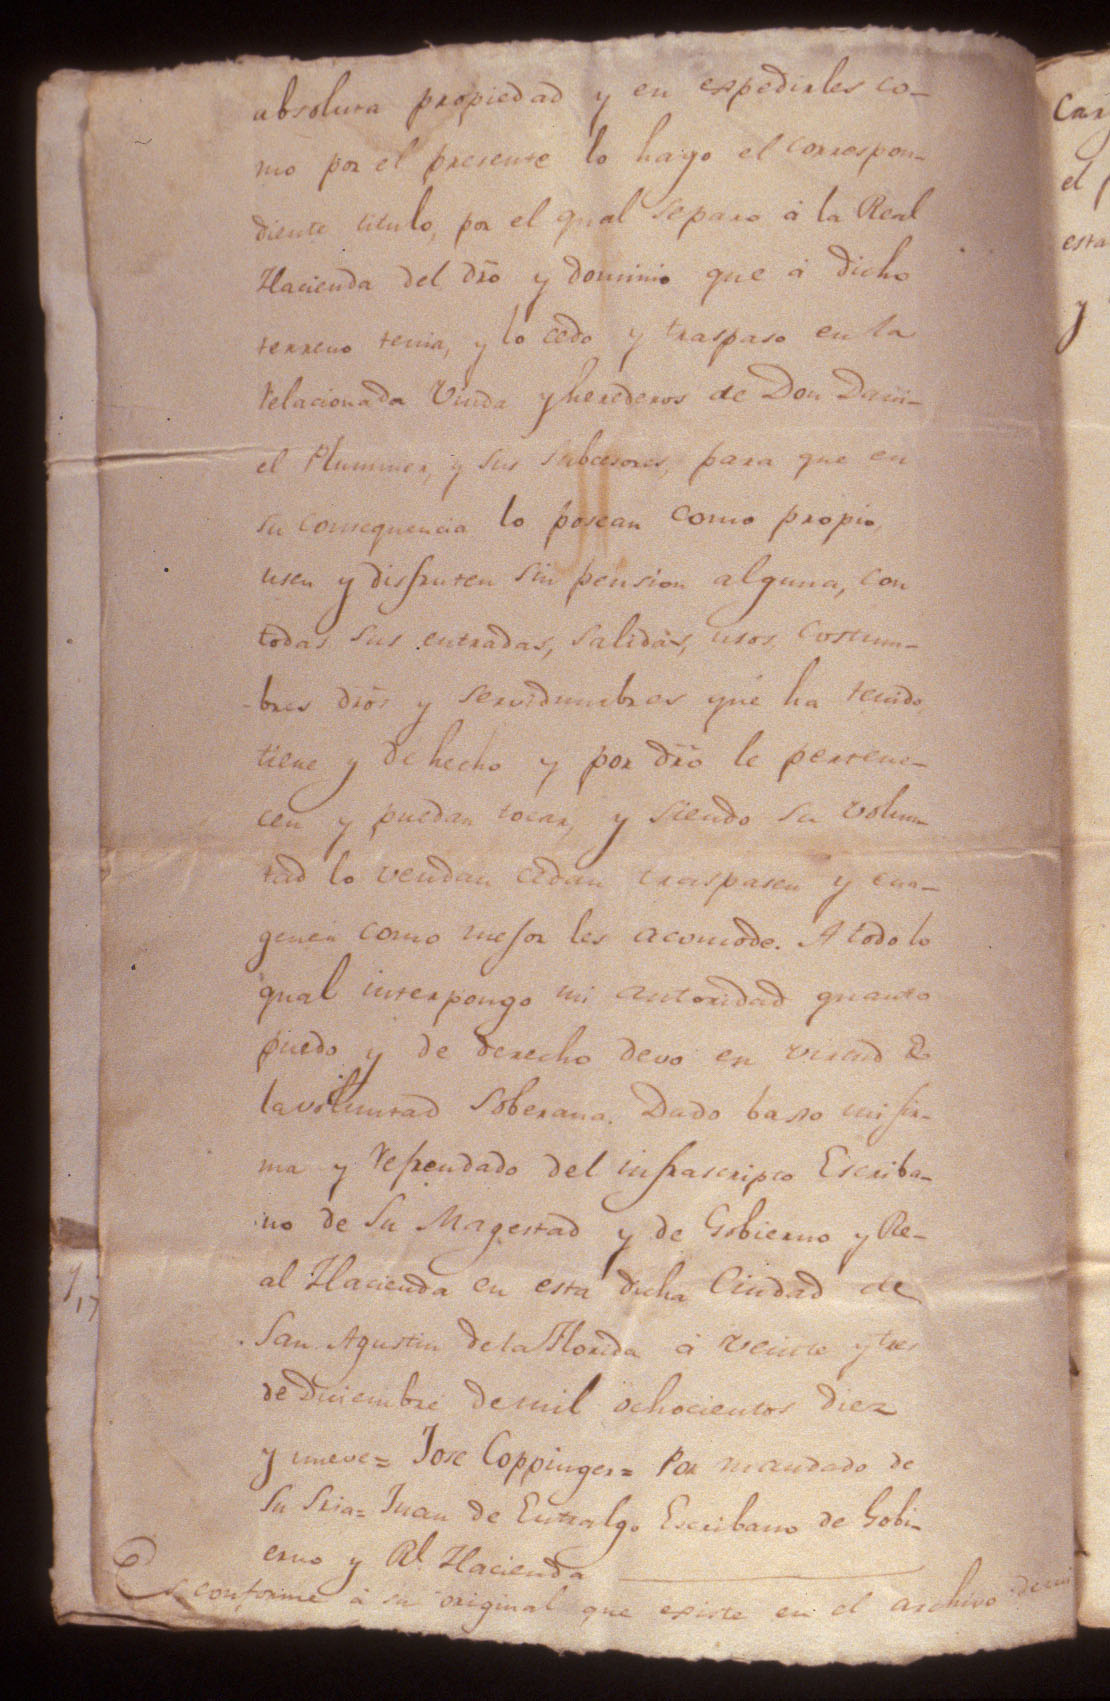 absoluta propiedad y en expedirles co-
mo por el presente lo hago el correspon-
diente titulo, por el qual separo á la Real
Hacienda del dr̃o y dominio que á dicho
terreno tenia, y lo cedo y traspaso en la
relacionada Viuda y herederos de Don Dani-
el Plummer, y sus subcesores, para que en
su consequencia lo posean como propio,
usen y disfruten sin pension alguna, con
todas sus entradas, salidas, usos, costum-
bres dr̃os y servidumbres que ha tenido,
tiene y de hecho y por dr̃o le pertene-
cen y puedan tocar, y siendo su volun-
tad lo vendan cedan traspasen y ena-
genen como mejor les acomode. A todo lo
qual interpongo mi autoridad quanto
puedo y de derecho devo en virtud de
la voluntad Soberana. Dado baxo mi fir-
ma y refrendado del infrascripto Escriba-
no de Su Magestad y de Gobierno y Re-
al Hacienda en esta dicha Ciudad de
San Agustin de la Florida á veinte y tres
de Diciembre de mil ochocientos diez
y nueve= Jose Coppinger= Por mandado de
Su Sria= Juan de Entralgo Escribano de Gobi-
erno y Rl. Hacienda
Es conforme á su original que existe en el archivo de mi
Car
el p
esta
y
y
17